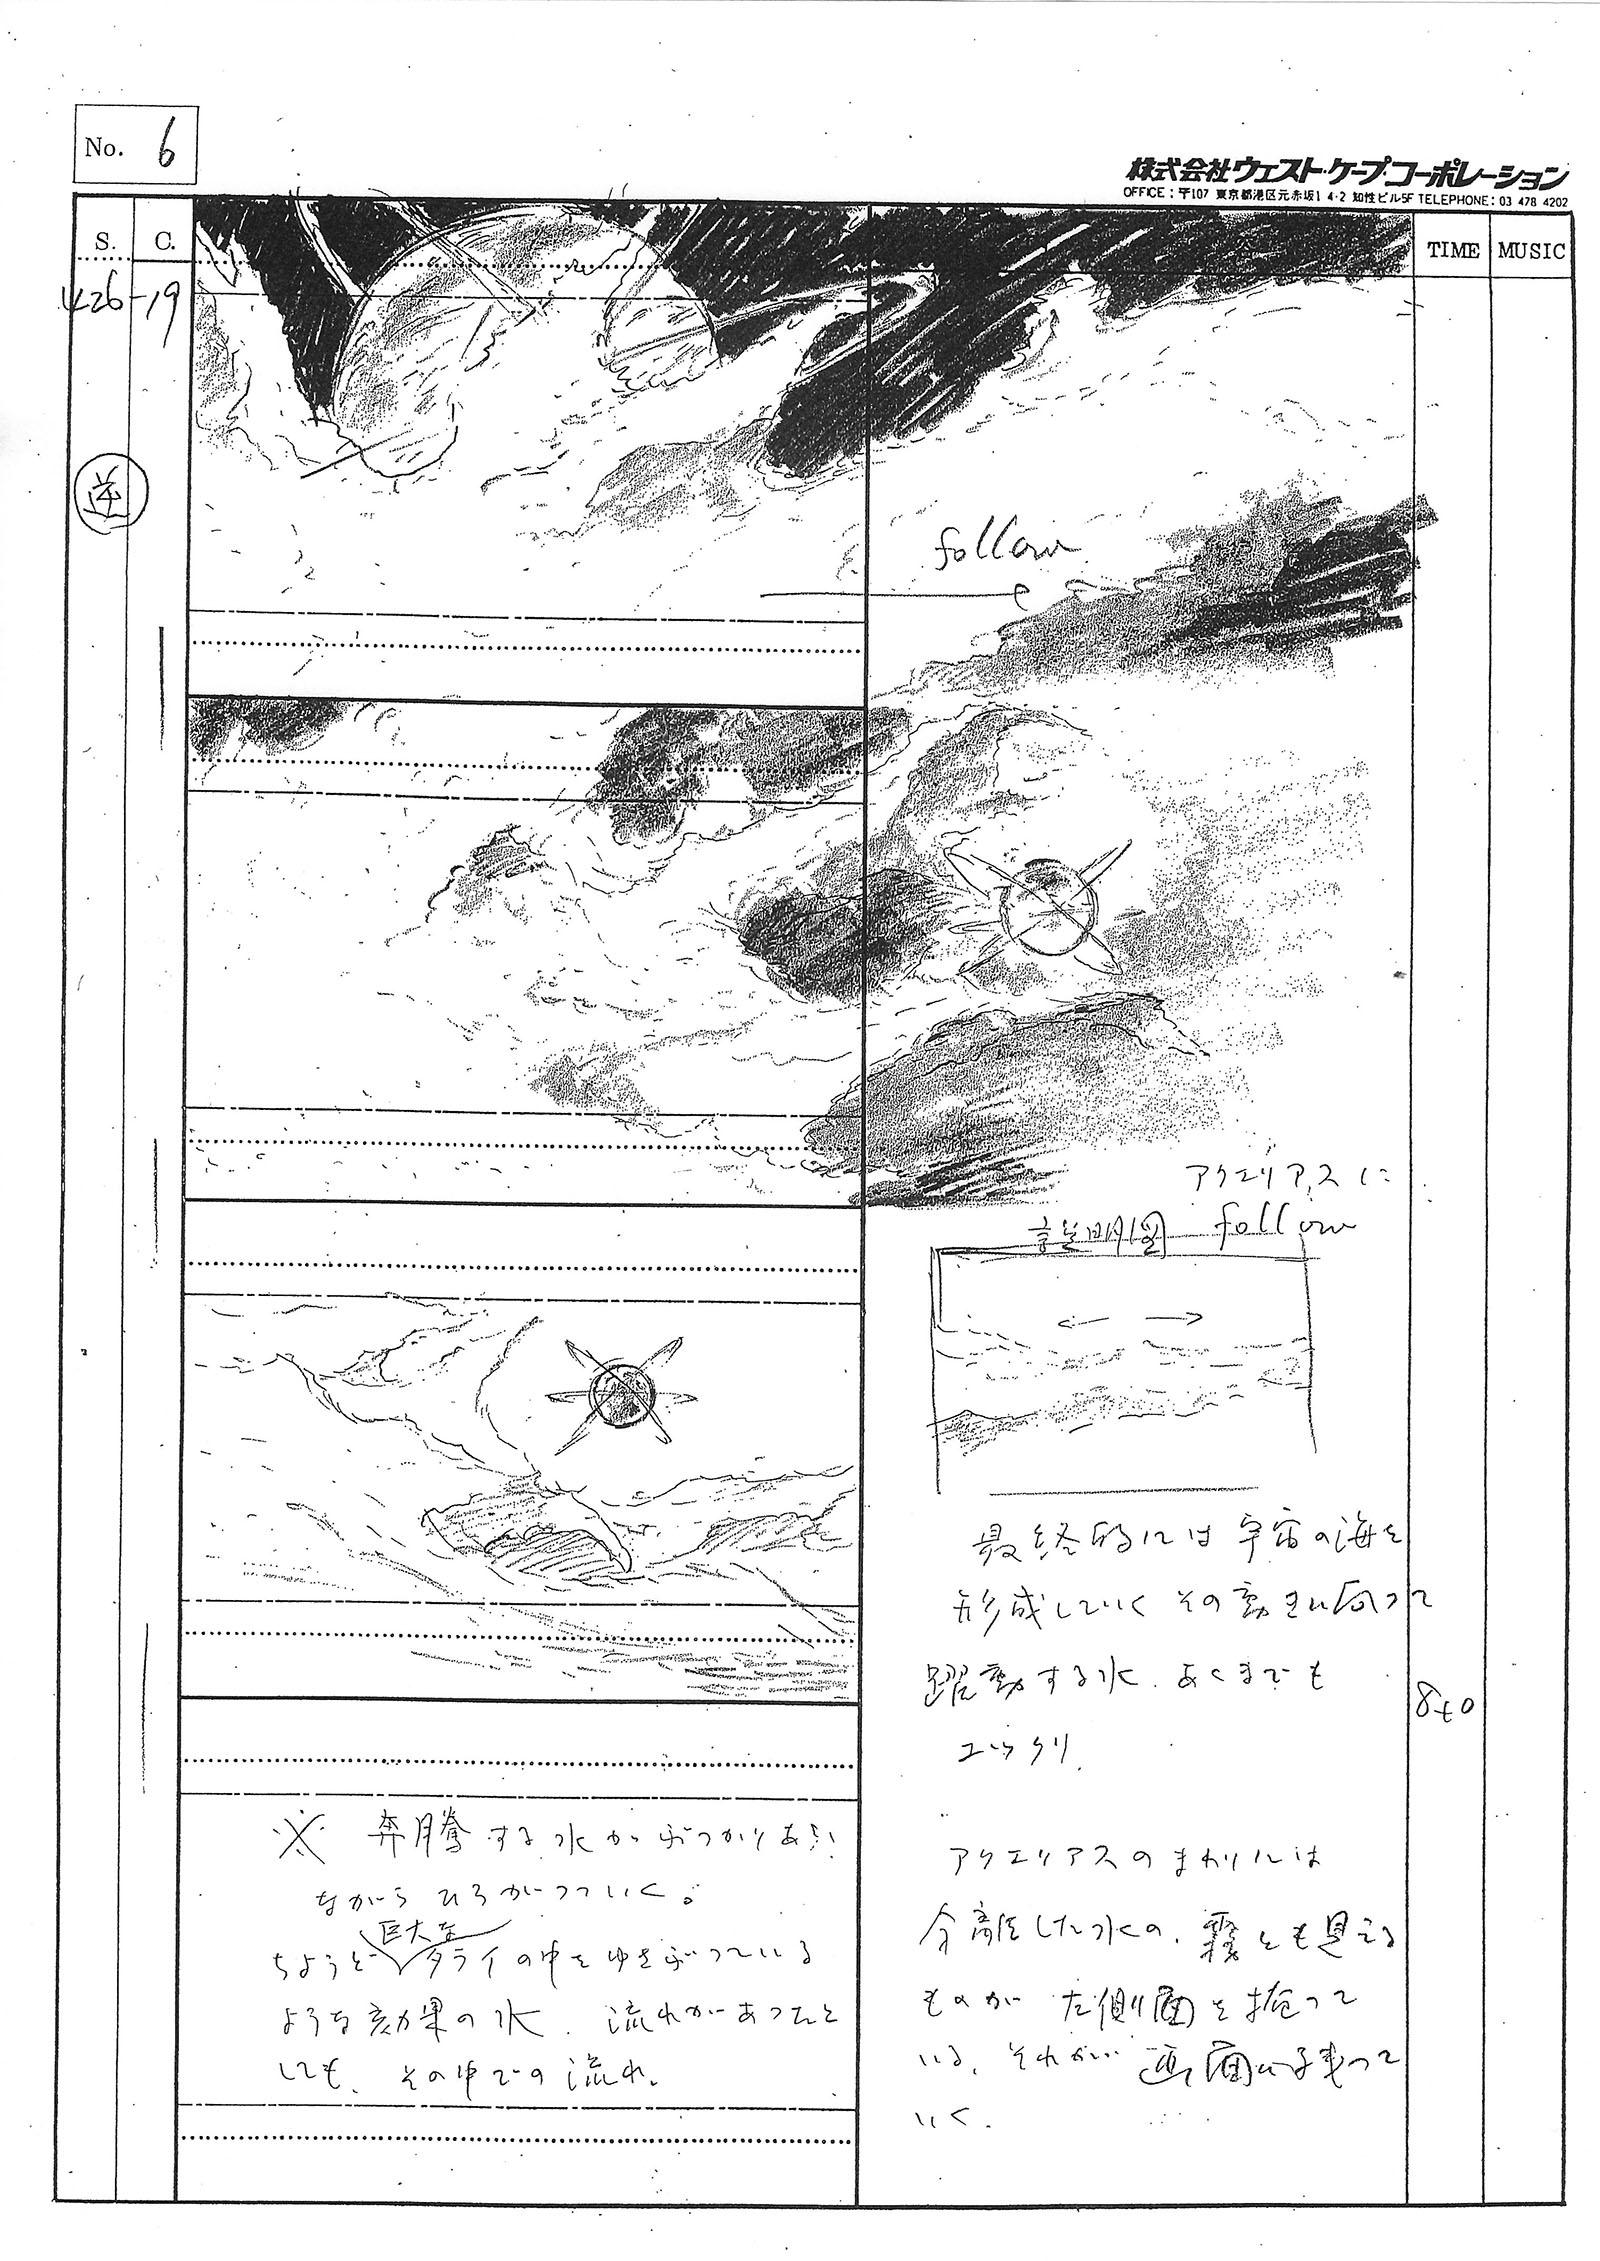 No. 6
株式会社ウエスト・ケープ・コーポレーション
OFFICE：〒107 東京都港区元赤坂1 4-2 知性ビル5F TELEPHONE：03 478 4202
S. C. TIME MUSIC
426-19
逆
follow
アクエリアスに
follow
説明図
最終的には宇宙の海を
形成していく その動きに向って
躍動する水、あくまでも
ユックリ
8+0
※ 奔騰する水がぶつかりあい
ながらひろがっていく。
ちょうど巨大なタライの中をゆさぶっている
ような効果の水、流れがあったと
しても、その中での流れ、
アクエリアスのまわりには
分離した水の、霧とも見える
ものが左側面を掩って
いる、それが画面に残って
いく、